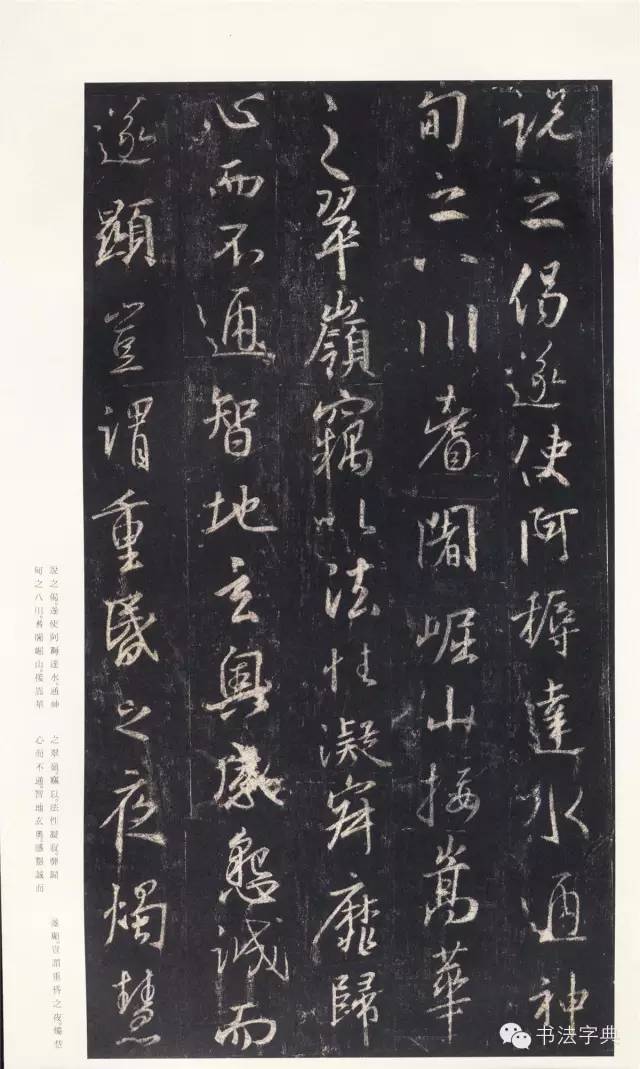 説之偈遂使阿耨達水通神
甸之八川耆闍崛山接嵩華
之翠嶺竊以法性凝寂靡歸
心而不通智地玄奧感懇誠而
遂顯豈謂重昏之夜燭慧
説之偈。遂使阿耨達水。通神
甸之八川。耆闍崛山。接嵩華
之翠嶺。竊以。法性凝寂。靡歸
心而不通。智地玄奧。感懇誠而
遂顯。豈謂重昏之夜。燭慧
书法字典